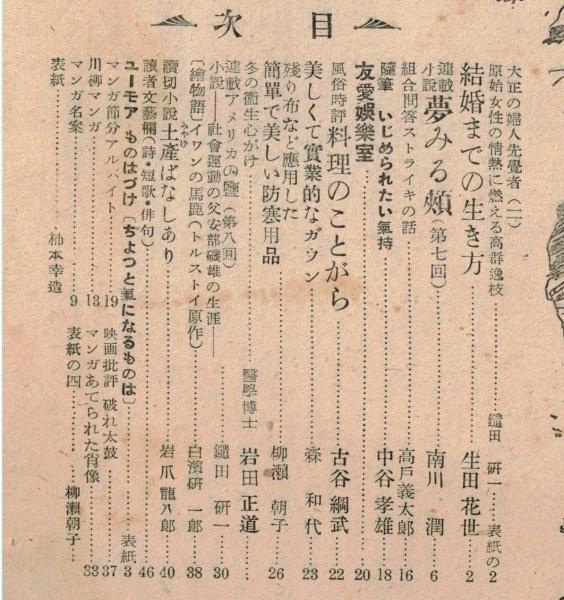 目次
大正の婦人先覺者(二)
原始女性の情熱に燃える高群逸枝……鑓田 研一……表紙の2
結婚までの生き方……生田 花世……2
連載小説 夢みる頰(第七回)……南川 潤……6
組合問答ストライキの話……高戸義太郎……16
隨筆 いじめられたい氣持……中谷 孝雄……18
友愛娯樂室……20
風俗時評 料理のことがら……古谷 綱武……22
美しくて實業的なガウン……森 和代……23
残り布など應用した
簡單で美しい防寒用品……柳瀬 朝子……26
冬の衛生心がけ……醫學博士 岩田 正道
連載小説 アメリカの鹽(第八回)
―社會運動の父安部磯雄の生涯―……鑓田 研一……30
〔繪物語〕イワンの馬鹿(トルストイ原作)……白濱研一郎……38
讀切小説 土産ばなしあり……岩爪 龍八郎……40
みやげ
讀者文藝欄(詩・短歌・俳句)……46
ユーモア ものはづけ〔ちょつと氣になるものは〕……表紙3
マンガ節分アルバイト……19
映画批評 破れ太鼓……37
川柳マンガ……13
マンガあてられた肖像……33
マンガ名案……9
表紙の四……柳瀬朝子……24
表紙……柿本幸造